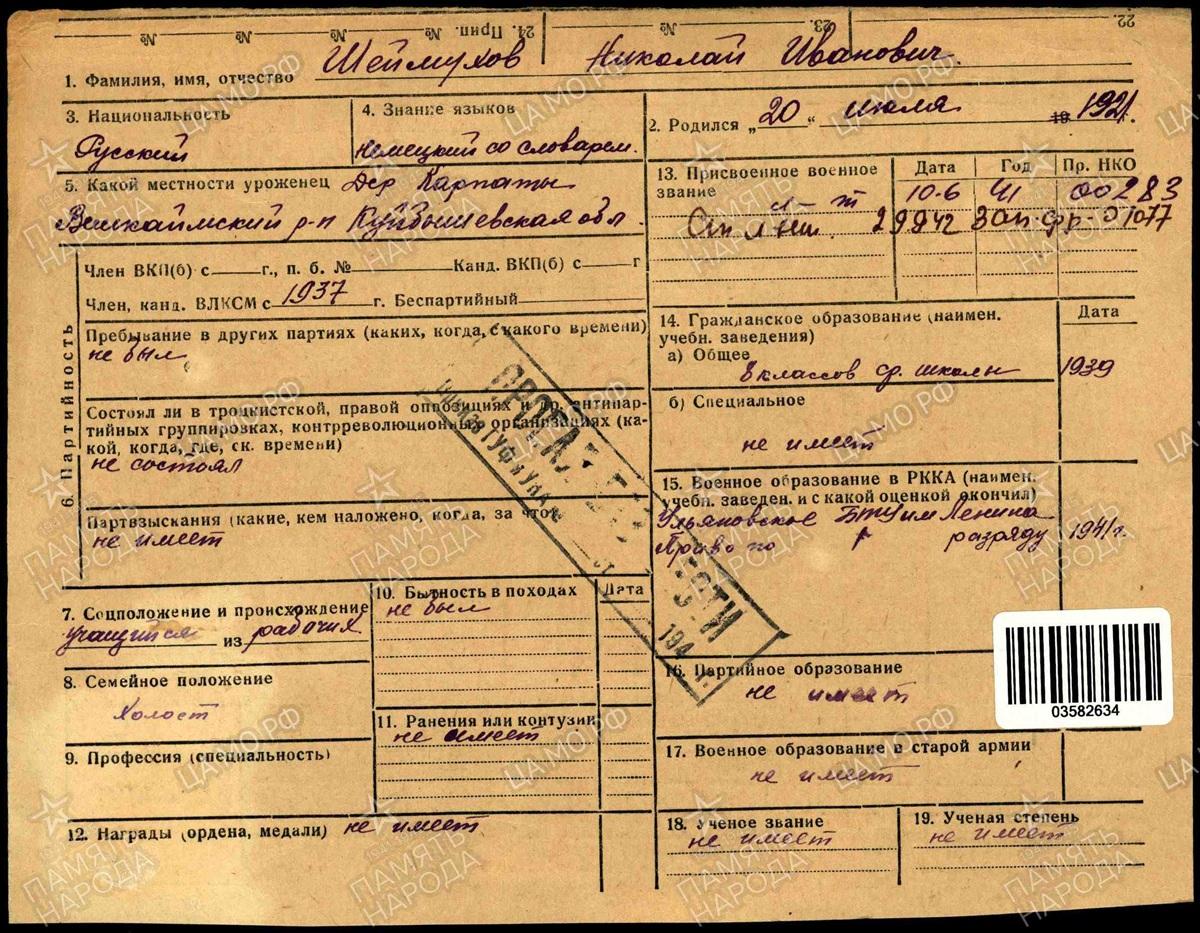 24. Прип. № № № №
23.
22.
1. Фамилия, имя, отчество Шеймухов Николай Иванович.
3. Национальность
Русский
4. Знание языков
немецкий со словарем.
2. Родился „20“ июля 19 1921.
5. Какой местности уроженец Дер Карпаты
Вешкаймский р-н Куйбышевская обл.
13. Присвоенное военное звание
Дата Год Пр. НКО
л-т 10.6 41 00283
Ст. л-нт. 29 9 42 Зап. фр-О 1077
6. Партийность
Член ВКП(б) с г., п. б. № Канд. ВКП(б) с г
Член, канд. ВЛКСМ с 1937 г. Беспартийный
Пребывание в других партиях (каких, когда, с какого времени)
не был
Состоял ли в троцкистской, правой оппозициях и др. антипар-
тийных группировках, контрреволюционных организациях (ка-
кой, когда, где, ск. времени)
не состоял
Партвзыскания (какие, кем наложено, когда, за что)
не имеет
14. Гражданское образование (наимен.
учебн. заведения)
Дата
а) Общее
8 классов ср. школы 1939
б) Специальное
не имеет
15. Военное образование в РККА (наимен.
учебн. заведен. и с какой оценкой окончил)
Ульяновское БТУ им Ленина
по разряду 1941 г.
7. Соцположение и происхождение
учащийся из рабочих
8. Семейное положение
Холост
9. Профессия (специальность)
10. Бытность в походах Дата
не был
11. Ранения или контузии
не имеет
12. Награды (ордена, медали) не имеет
16. Партийное образование
не имеет
17. Военное образование в старой армии
не имеет
18. Ученое звание
не имеет
19. Ученая степень
не имеет
ПРОПАЛ БЕЗ ВЕСТИ
194 г.
03582634
ПАМЯТЬ НАРОДА
ЦАМО.РФ